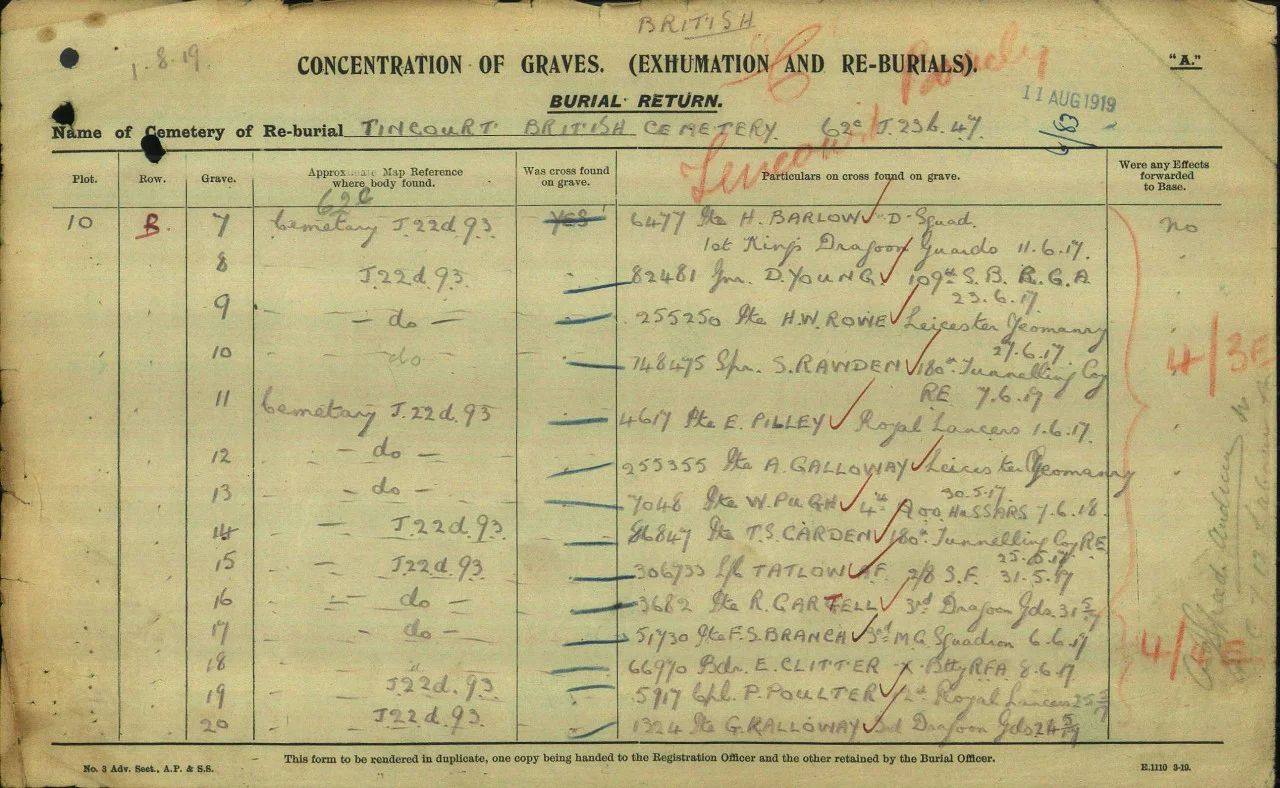 BRITISH
1.8.19
CONCENTRATION OF GRAVES. (EXHUMATION AND RE-BURIALS).
"A."
BURIAL RETURN.
11 AUG 1919
Name of Cemetery of Re-burial TINCOURT BRITISH CEMETERY. 62c J.23b.47.
Plot. Row. Grave. Approximate Map Reference where body found. Was cross found on grave. Particulars on cross found on grave. Were any Effects forwarded to Base.
62c
10 B. 7 Cemetary J.22d.93 YES 6477 Pte H. BARLOW D. Squad. No
1st Kings Dragoon Guards 11.6.17.
8 J.22d.93. 82481 Gnr. D. YOUNG 109th S.B. R.G.A
23.6.17
9 - do - 255250 Pte H.W. ROWE Leicester Yeomanry
27.6.17.
10 do 148475 Spr. S. RAWDEN 180th Tunnelling Coy
RE 7.6.17
11 Cemetary J.22d.93 4617 Pte E. PILLEY Royal Lancers 1.6.17.
12 - do - 255355 Pte A. GALLOWAY Leicester Yeomanry
30.5.17
13 - do - 7048 Pte W. PUGH 4th HUSSARS 7.6.18.
14 J.22d.93. 86847 Pte T.S. CARDEN 180th Tunnelling Coy RE
25.5.17
15 J.22d.93. 306733 L/c TATLOW 2/8 S.F. 31.5.17
16 - do - 3682 Pte R. GARTELL 3rd Dragoon Gds. 31 5/17
17 - do - 51730 Pte F.S. BRANCH 3rd M.G. Squadron 6.6.17
18 66970 Bdr. E. CLITTER X. Btty RFA 8.6.17
19 J.22d.93 5917 Cpl. P. POULTER Royal Lancers
20 J.22d.93. 1324 Pte G. KALLOWAY 3rd Dragoon Gds
4/3E
4/4E
This form to be rendered in duplicate, one copy being handed to the Registration Officer and the other retained by the Burial Officer.
No. 3 Adv. Sect., A.P. & S.S.
E.1110 3-19.